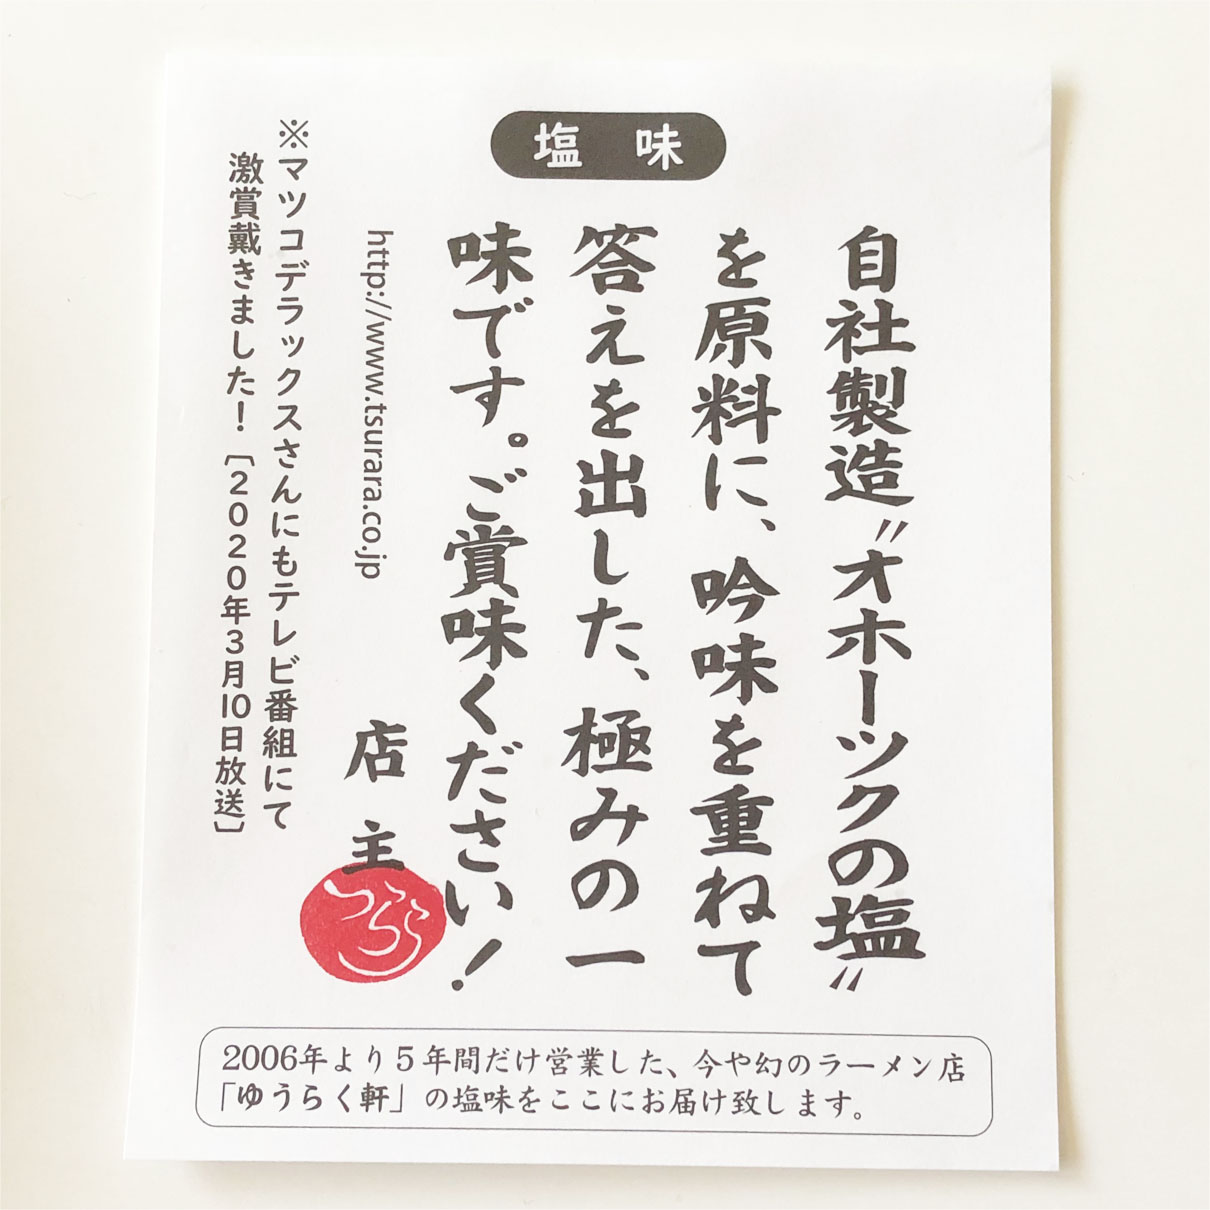 塩味
自社製造〝オホーツクの塩〟
を原料に、吟味を重ねて
答えを出した、極みの一
味です。ご賞味ください！
http://www.tsurara.co.jp
店主
つらら
※マツコデラックスさんにもテレビ番組にて
激賞戴きました！［2020年3月10日放送］
2006年より5年間だけ営業した、今や幻のラーメン店
「ゆうらく軒」の塩味をここにお届け致します。